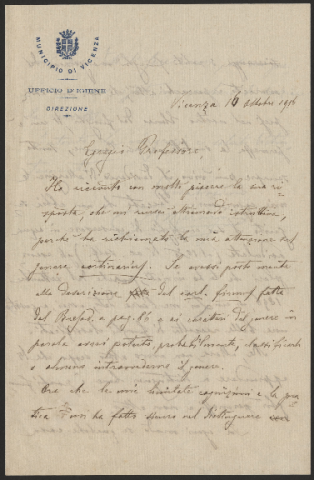 MUNICIPIO DI VICENZA
UFFICIO D'IGIENE
DIREZIONE
Vicenza 16 ottobre 1906
Egregio Professore
Ho ricevuto con molto piacere la sua ri-
sposta, che mi riuscì altremodo istruttiva,
perché ha richiamato la mia attenzione sul
genere cortinarius. Se avessi posto mente
alla descrizione del cort. firmus fatta
dal Bresad. a pag. 60 e ai caratteri del genere in
parola avrei potuto, probabilmente, classificarlo
o almeno intravvederne il genere.
Ora che le mie limitate cognizioni e la pra-
tica mi ha fatto sicuro nel distinguere